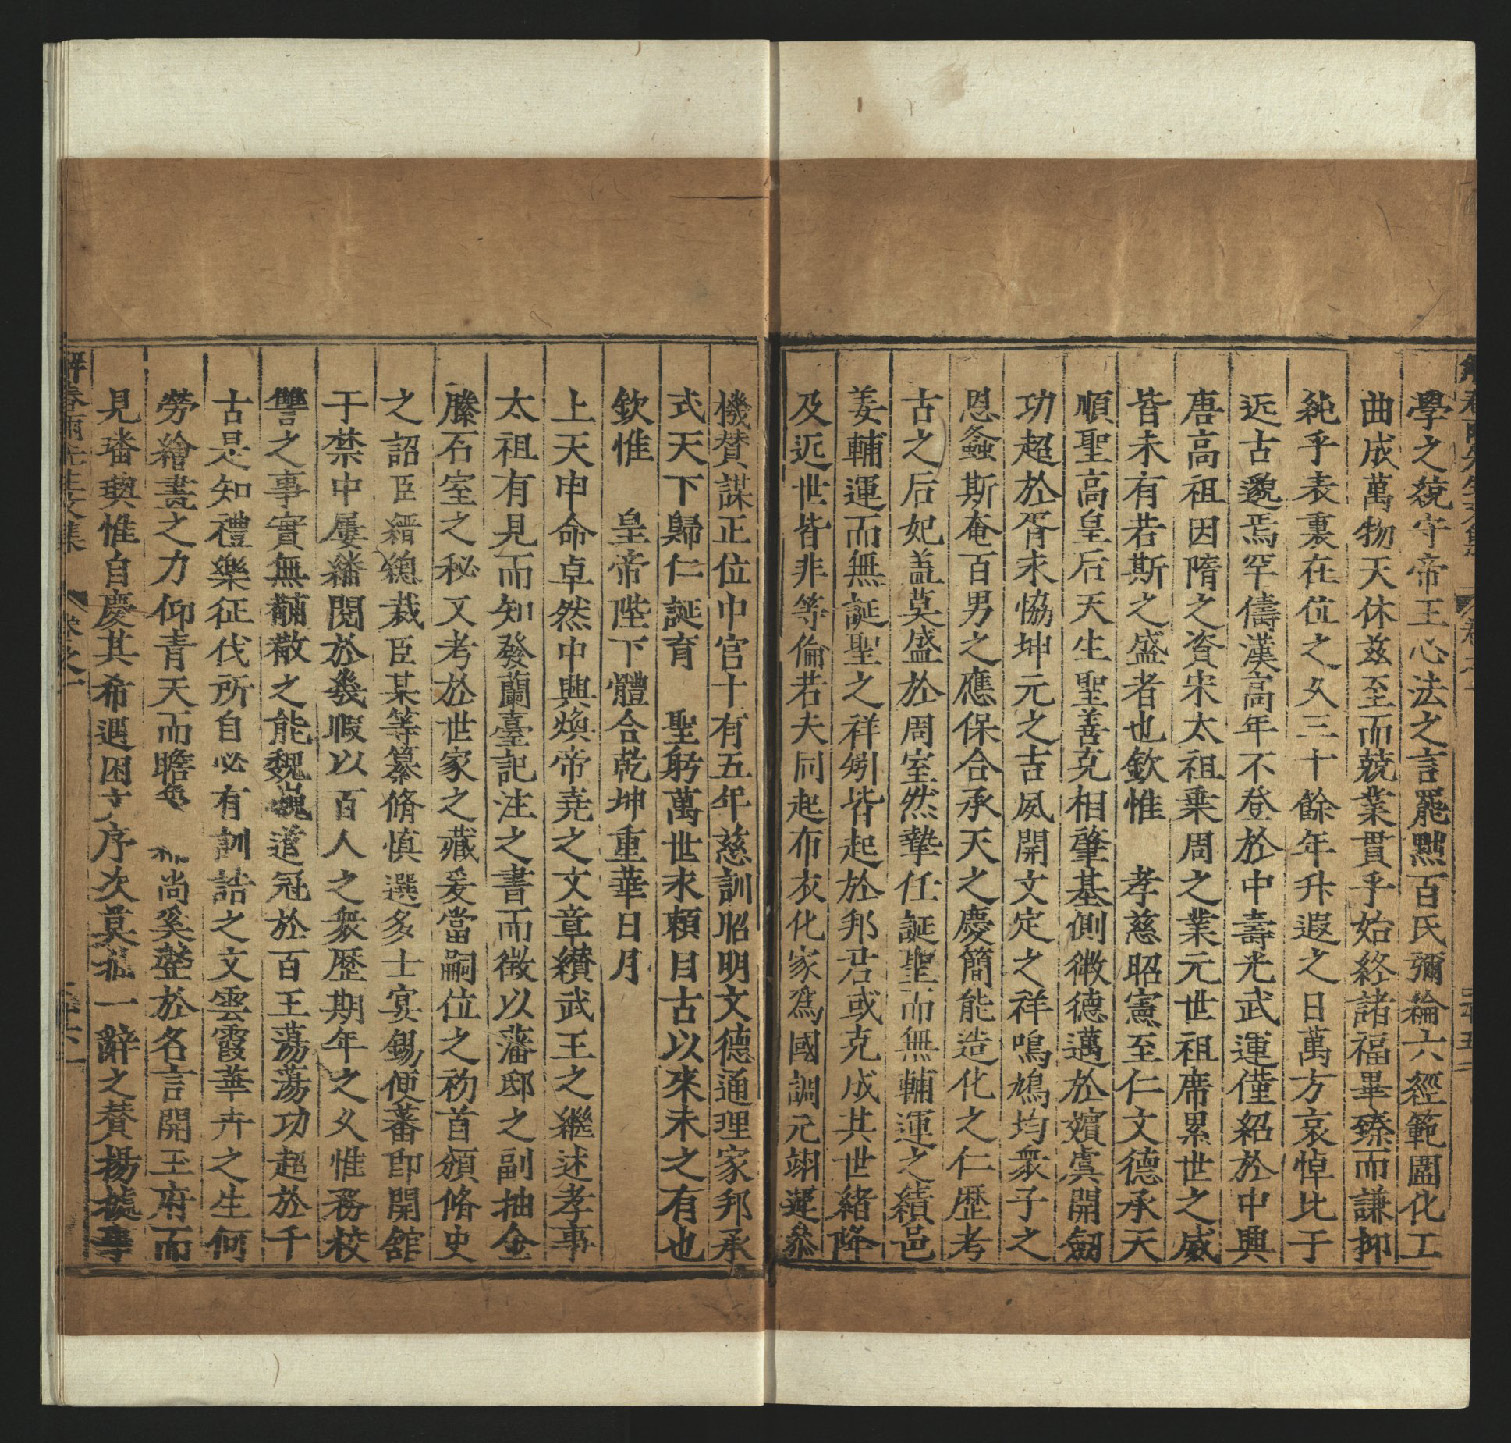 學之統守帝王心法之言罷黜百氏彌綸六經範圍化工
曲成萬物天休兹至而兢業貫乎始終諸福畢臻而謙抑
純乎表裏在位之久三十餘年升遐之日萬方哀悼比于
近古邈焉罕儔漢高年不登於中壽光武運僅紹於中興
唐高祖因隋之資宋太祖乗周之業元世祖席累世之威
皆未有若斯之盛者也欽惟　孝慈昭憲至仁文德承天
順聖高皇后天生聖善克相肇基側微德邁於嬪虞開創
功超於胥求恊坤元之古夙開文定之祥鳴鳩均衆子之
恩螽斯奄百男之應保合承天之慶簡能造化之仁歷考
古之后妃葢莫盛於周室然摯任誕聖而無輔運之績邑
姜輔運而無誕聖之祥矧皆起於邦君或克成其世緒降
及近世皆非等倫若夫同起布衣化家爲國調元翊運叅
機賛謀正位中宮十有五年慈訓昭明文德通理家邦承
式天下歸仁誕育　聖躬萬世永賴自古以來未之有也
欽惟　皇帝陛下體合乾坤重華日月
上天申命卓然中興煥帝尭之文章纘武王之繼述孝事
太祖有見而知發蘭臺記注之書而徴以藩邸之副抽金
縢石室之秘又考於世家之藏爰當嗣位之初首頒脩史
之詔臣縉總裁臣某等纂脩慎選多士寔錫便蕃卽開舘
于禁中屢繙閱於幾暇以百人之衆歷期年之久惟務校
讐之事實無黼黻之能巍巍道冠於百王蕩蕩功超於千
古是知禮樂征伐所自必有訓誥之文雲霞華卉之生何
勞繪畫之力仰青天而瞻　　尚奚塹於名言開玉府而
見璠璵惟自慶其希遇困　序次莫　一辭之賛揚㩁事
解春雨先生文集　卷之